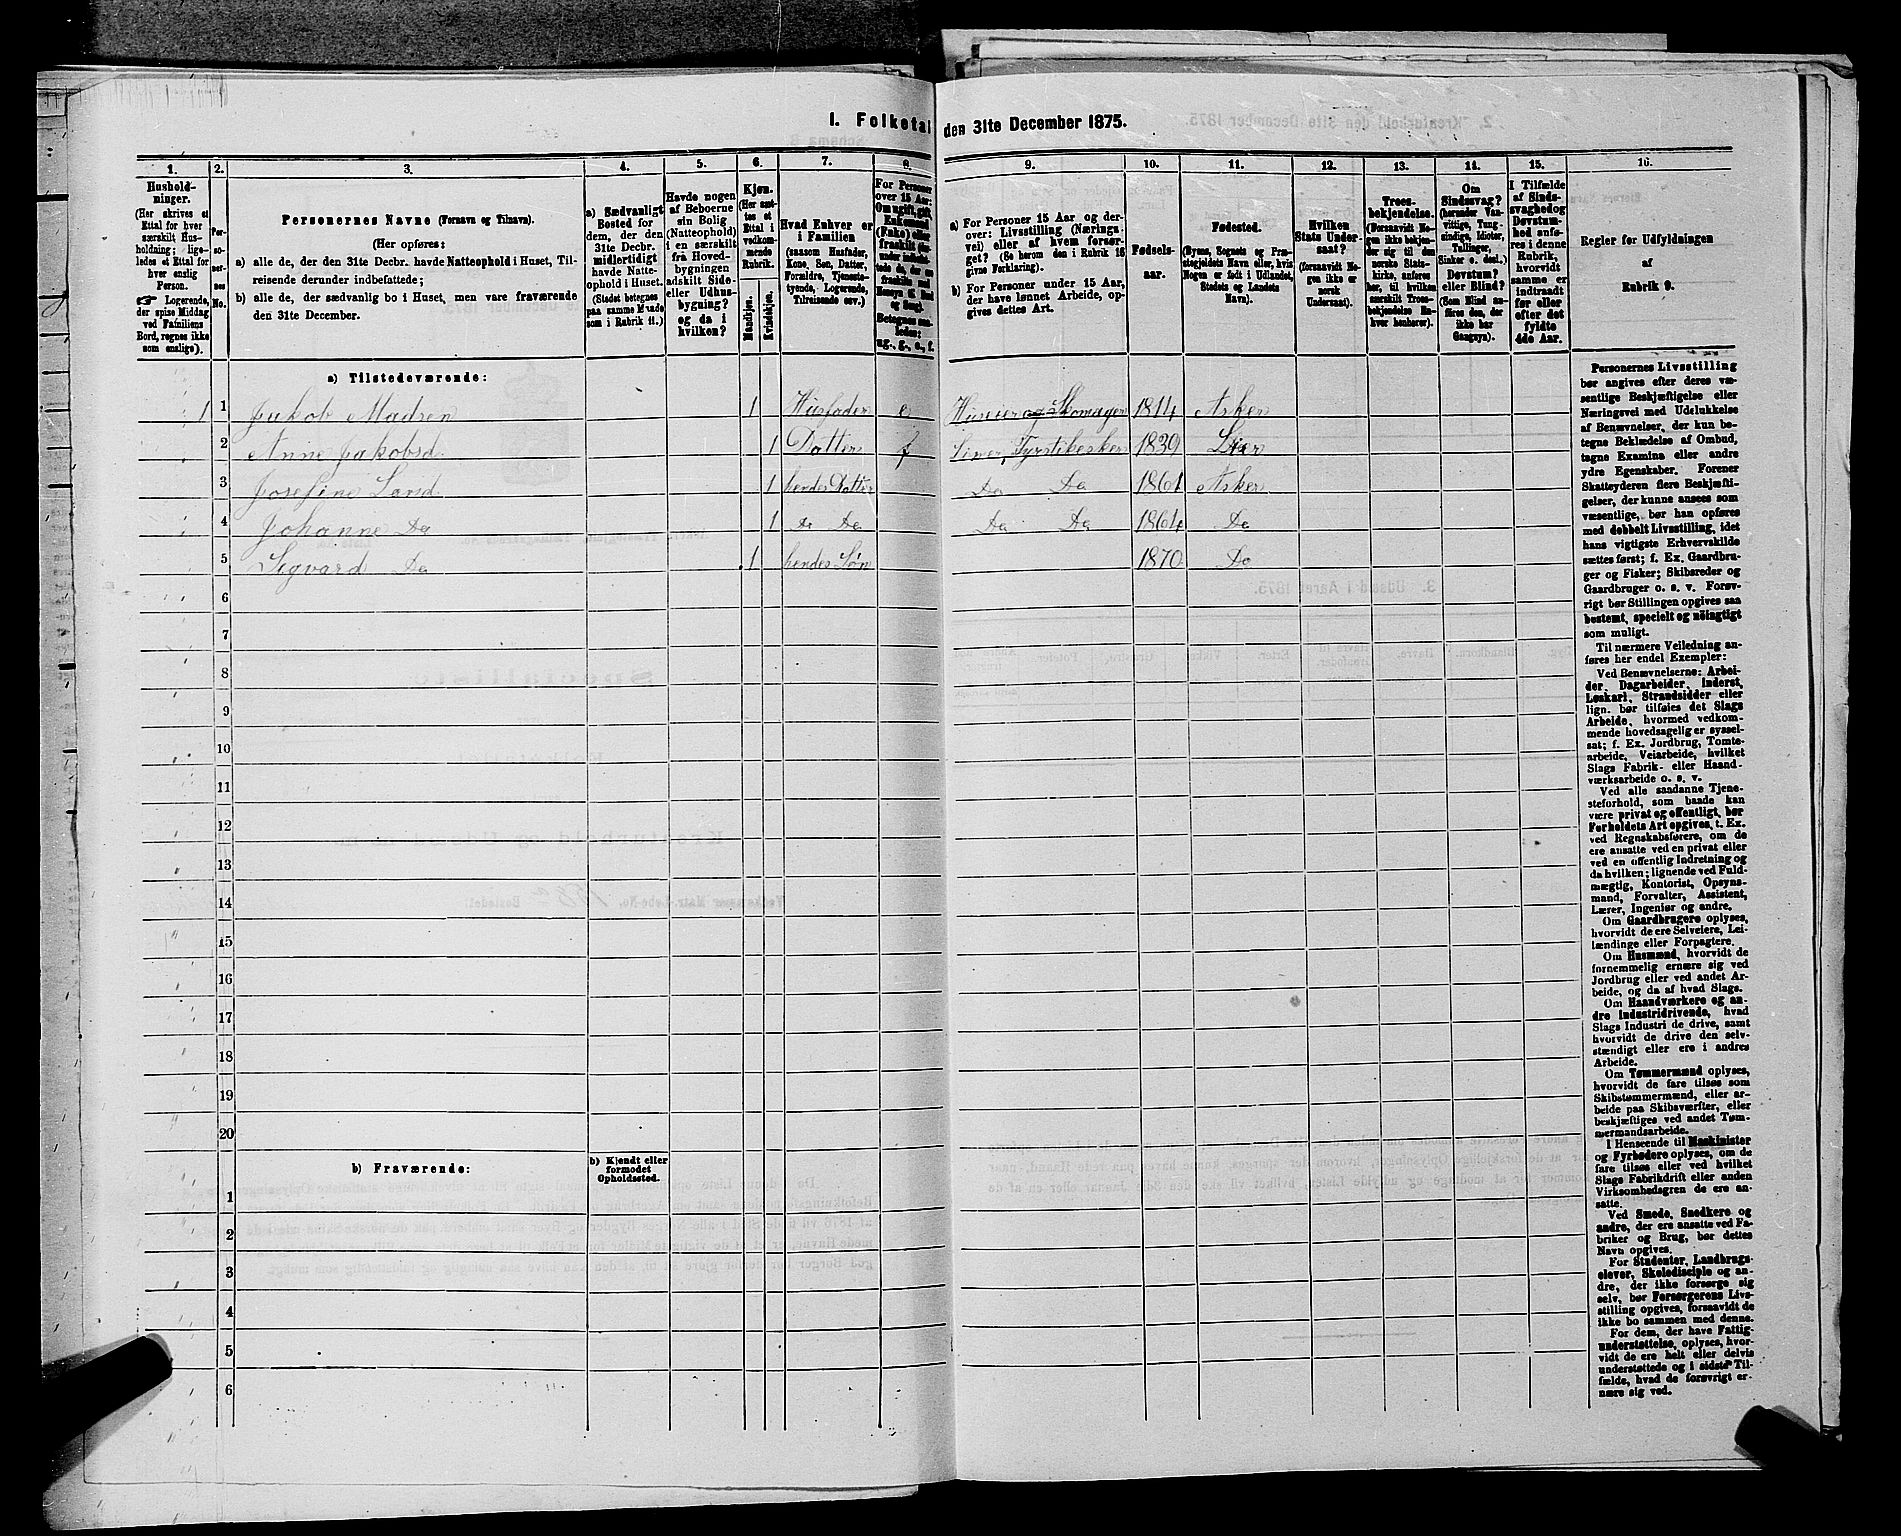 I. Folketal den 31te December 1875.
1. 2. 3. 4. 5. 6. 7. 8. 9. 10. 11. 12. 13. 14. 15. 16.
Hushold-
ninger.
(Her skrives et
Ettal for hver
særskilt Hus-
holdning; lige-
ledes et Ettal for
hver enslig
Person.
☞ Logerende,
der spise Middag
ved Familiens
Bord, regnes ikke
som enslige).
Per-
so-
ner-
nes
No.
Personernes Navne (Fornavn og Tilnavn).
(Her opføres:
a) alle de, der den 31te Decbr. havde Natteophold i Huset, Til-
reisende derunder indbefattede;
b) alle de, der sædvanlig bo i Huset, men vare fraværende
den 31te December.
a) Sædvanligt
Bosted for
dem, der den
31te Decbr.
midlertidigt
havde Natte-
ophold i Huset.
(Stedet betegnes
paa samme Maade
som i Rubrik 11.)
Havde nogen
af Beboerne
sin Bolig
(Natteophold)
i en særskilt
fra Hoved-
bygningen
adskilt Side-
eller Udhus-
bygning?
og da i
hvilken?
Kjøn.
(Her sæt-
tes et
Ettal i
vedkom-
mende
Rubrik.
Mandkjøn.
Kvindekjøn.
Hvad Enhver er
i Familien
(saasom Husfader,
Kone, Søn, Datter,
Forældre, Tjeneste-
tyende, Logerende,
Tilreisende osv.)
For Personer
over 15 Aar:
Om ugift, gift,
Enkemand
(Enke) eller
fraskilt
Betegnes saa-
ledes:
ug., g., e., f.
a) For Personer 15 Aar og der-
over: Livsstilling (Nærings-
vei) eller af hvem forsør-
get? (Se herom den i Rubrik 16
givne Forklaring).
b) For Personer under 15 Aar,
der have lønnet Arbeide, op-
gives dettes Art.
Fødsels-
aar.
Fødested.
(Byens, Sognets og Præ-
stegjeldets Navn eller, hvis
Nogen er født i Udlandet,
Stedets og Landets
Navn).
Hvilken
Stats Under-
saat?
(forsaavidt No-
gen ikke er
norsk
Undersaat).
Troes-
bekjendelse.
(Forsaavidt No-
gen ikke bekjen-
der sig til den
norske Stats-
kirke, anføres
her, til hvilken
særskilt Troes-
bekjendelse En-
hver henhører).
Om
Sindssvag?
(herunder Van-
vittige, Tung-
sindige, Idioter,
Tullinger,
Sinker o. desl.)
Døvstum?
eller Blind? I
(Som Blind an-
føres den, der
ikke har
Gangsyn).
I Tilfælde
af Sinds-
svaghed og
Døvstum-
hed anfø-
res i denne
Rubrik,
hvorvidt
samme er
indtraadt
før eller
efter det
fyldte
4de Aar.
Regler for Udfyldningen
af
Rubrik 9.
a) Tilstedeværende:
1 1 Jakob Madsen 1 Husfader e Huseier og Skomager 1814 Asker
2 Anne Jakobsd. 1 Datter f Limer, Fyrstikesker 1839 Lier
3 Josefine Lond. 1 hendes Datter Do Do 1861 Asker
4 Johanne Do 1 Do Do Do Do 1864 Do
5 Sigvard Do 1 hendes Søn 1870 Do
6
7
8
9
10
11
12
13
14
15
16
17
18
19
20
b) Fraværende:
b) Kjendt eller
formodet
Opholdssted.
1
2
3
4
5
6
Personernes Livsstilling
bør angives efter deres væ-
sentlige Beskjæftigelse eller
Næringsvei med Udelukkelse
af Benævnelser, der kun be-
tegne Beklædelse af Ombud,
tagne Examina eller andre
ydre Egenskaber. Forener
Skatteyderen flere Beskjæfti-
gelser, der kunne ansees som
væsentlige, bør han opføres
med dobbelt Livsstilling, idet
hans vigtigste Erhvervskilde
sættes først; f. Ex. Gaardbru-
ger og Fisker; Skibsreder og
Gaardbruger o. s. v. Forøv-
rigt bør Stillingen opgives saa
bestemt, specielt og nøiagtigt
som muligt.
Til nærmere Veiledning an-
føres her endel Exempler:
Ved Benævnelserne: Arbei-
der, Dagarbeider, Inderst,
Løskarl, Strandsidder eller
lign. bør tilføies det Slags
Arbeide, hvormed vedkom-
mende hovedsagelig er syssel-
sat; f. Ex. Jordbrug, Tomte-
arbeide, Veiarbeide, hvilket
Slags Fabrik- eller Haand-
værksarbeide o. s. v.
Ved alle saadanne Tjene-
steforhold, som baade kan
være privat og offentligt, bør
Forholdets Art opgives, t. Ex.
ved Regnskabsførere, om de
ere ansatte ved en privat eller
ved en offentlig Indretning og
da hvilken; lignende ved Fuld-
mægtig, Kontorist, Opsyns-
mand, Forvalter, Assistent,
Lærer, Ingeniør og andre.
Om Gaardbrugere oplyses,
hvorvidt de ere Selveiere, Lei-
lændinge eller Forpagtere.
Om Husmænd, hvorvidt de
fornemmelig ernære sig ved
Jordbrug eller ved andet Ar-
beide, og da af hvad Slags.
Om Haandværkere og an-
dre Industridrivende, hvad
Slags Industri de drive, samt
hvorvidt de drive den selv-
stændigt eller ere i andres
Arbeide.
Om Tømmermænd oplyses,
hvorvidt de fare tilsøs som
Skibstømmermænd, eller ar-
beide paa Skibsværfter, eller
beskjæftiges ved andet Tøm-
mermandsarbeide.
I Henseende til Maskinister
og Fyrbødere oplyses, om de
fare tilsøs eller ved hvilket
Slags Fabrikdrift eller anden
Virksomhedsgren de ere an-
satte.
Ved Smede, Snedkere og
andre, der ere ansatte ved Fa-
briker og Brug, bør dettes
Navn opgives.
For Studenter, Landbrugs-
elever, Skoledisciple og an-
dre, der ikke forsørge sig
selv, bør Forsørgerens Livs-
stilling opgives, forsaavidt de
ikke bo sammen med denne.
For dem, der have Fattig-
understøttelse, oplyses, hvor-
vidt de ere helt eller delvis
understøttede og i sidste Til-
fælde, hvad de forøvrigt er-
nære sig ved.